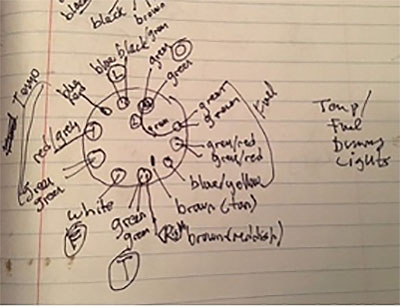 black
black
brown
blue
black
green
green
blue
red
Temp
L
red/grey
green
green
green
green
green
Fuel
grey/red
grey/red
blue/yellow
white
brown (tan)
green
green
brown (reddish)
T
Temp/
Fuel
Dummy
Lights